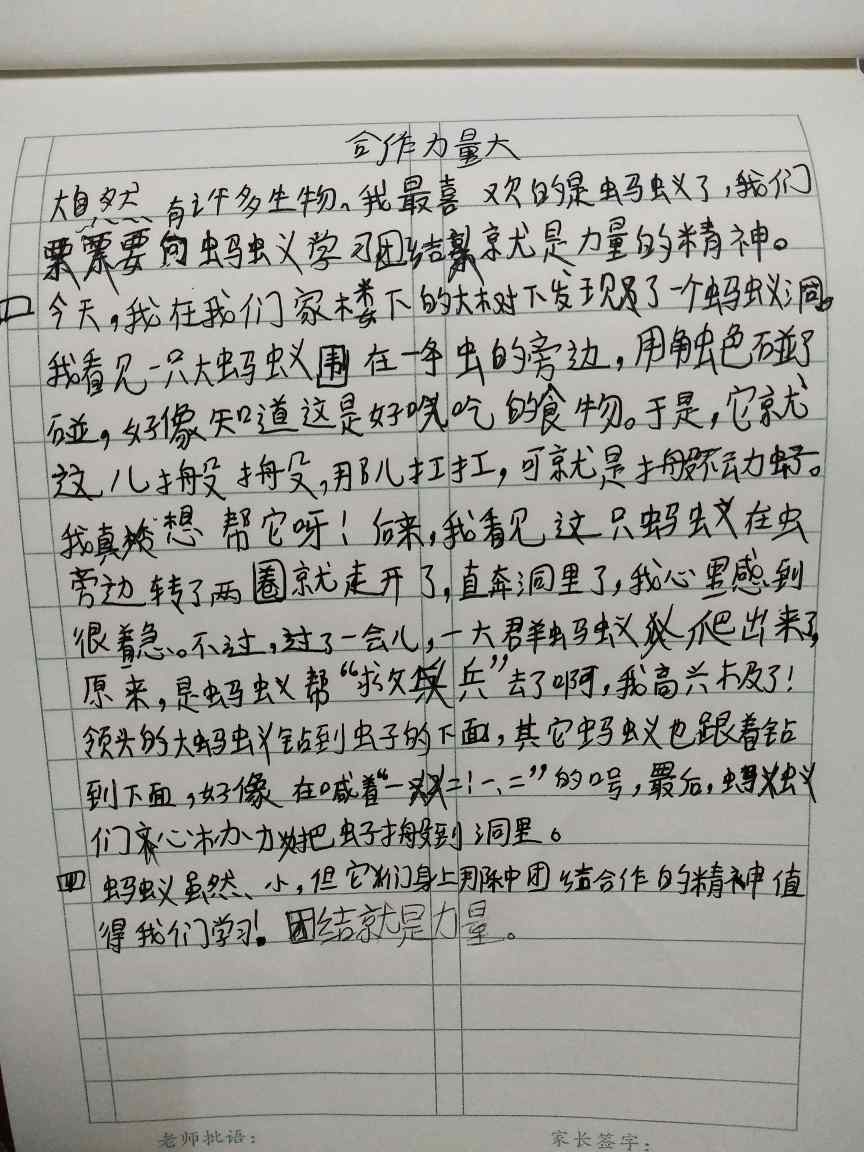 合作力量大
大自然有许多生物、我最喜欢的是蚂蚁了，我们
要向蚂蚁学习团结就是力量的精神。
今天，我在我们家楼下的大树下发现了一个蚂蚁洞。
我看见一只大蚂蚁围在一条虫的旁边，用触色碰了
碰，好像知道这是好吃的食物。于是，它就
这儿搬搬，那儿扛扛，可就是搬不动虫子。
我真想帮它呀！后来，我看见这只蚂蚁在虫
旁边转了两圈就走开了，直奔洞里了，我心里感到
很着急。不过，过了一会儿，一大群蚂蚁爬出来了，
原来，是蚂蚁帮“求救兵”去了啊，我高兴极了！
领头的大蚂蚁钻到虫子的下面，其它蚂蚁也跟着钻
到下面，好像在喊着“一二！一、二”的口号，最后，蚂蚁
们齐心协力把虫子搬到洞里。
蚂蚁虽然小，但它们身上那种团结合作的精神值
得我们学习！团结就是力量。
老师批语： 家长签字：